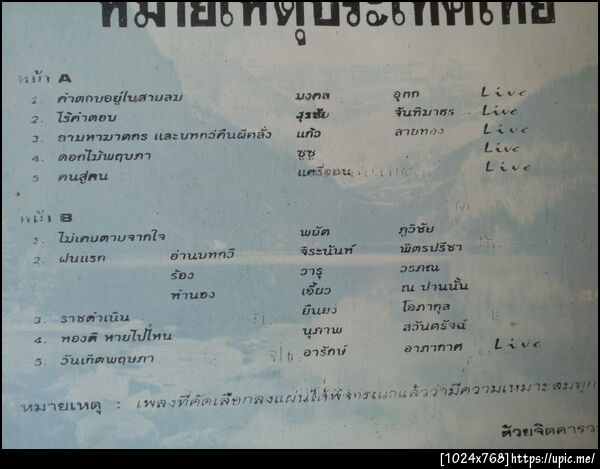 หมายเหตุประเทศไทย
หน้า A
1. คำตอบอยู่ในสายลม มงคล อุทก Live
2. ไร้คำตอบ สุรชัย จันทิมาธร Live
3. ถามหามาตกร และบทกวีคืนผีคลั่ง แก้ว ลายทอง Live
4. ดอกไม้พฤษภา ซูซู Live
5 คนสู่คน แฮร์รี่ออน Live
หน้า B
1. ไม่เคยตายจากใจ พยัต ภูวิชัย
2. ฝนแรก อ่านบทกวี จิระนันท์ พิตรปรีชา
ร้อง วารุ วรภณ
ทำนอง เอี้ยว ณ ปานนั้น
3. ราชดำเนิน ยืนยง โอภากุล
4. ทองดี หายไปไหน นุภาพ สวันตรัจฉ์
5 วันเกิดพฤษภา อารักษ์ อาภากาศ Live
หมายเหตุ : เพลงที่คัดเลือกลงแผ่นได้พิจารณาแล้วว่ามีความเหมาะสมทุก
ด้วยจิตคารว
[1024x768]https://upic.me/